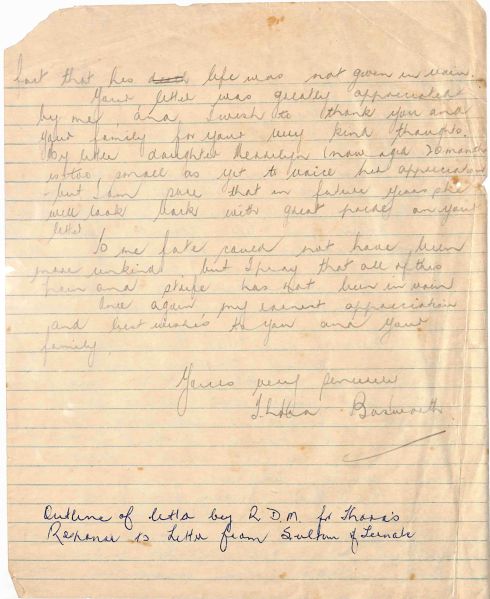 fact that his dead life was not given in vain.
Your letter was greatly appreciated
by me, and I wish to thank you and
your family for your very kind thoughts.
My little daughter Merrilyn now aged 20 months
is too small as yet to voice her appreciation
but I am sure that in future years she
will look back with great pride on your
letter
To me fate could not have been
more unkind, but I pray that all of this
pain and strife has not been in vain
Once again my earnest appreciation
and best wishes to you and your
family.
Yours very sincerely
Bosworth.
Outline of letter by R.D.M. for Thora's
Response to Letter from Sultan of Ternate